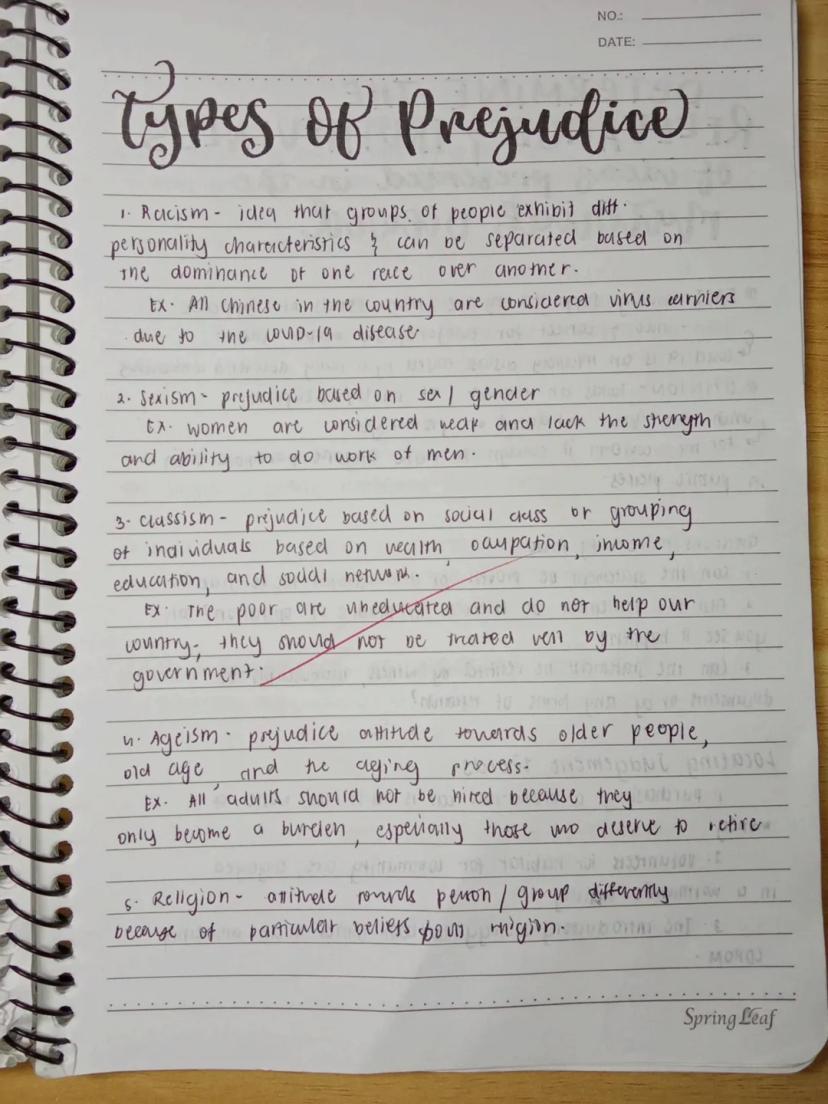 NO.:
DATE:
Types of Prejudice
1. Racism - idea that groups of people exhibit diff.
personality characteristics & can be separated based on
the dominance of one race over another.
Ex. All Chinese in the country are considered virus carriers
due to the COVID-19 disease
2. Sexism - prejudice based on sex / gender
Ex. women are considered weak and lack the strength
and ability to do work of men.
3. Classism - prejudice based on social class or grouping
of individuals based on wealth, occupation, income,
education, and social network.
Ex. The poor are uneducated and do not help our
country; they should not be treated well by the
government.
4. Ageism - prejudice attitude towards older people,
old age, and the aging process.
Ex. All adults should not be hired because they
only become a burden, especially those who deserve to retire
5. Religion - attitude towards person / group differently
because of particular beliefs religion.
Spring Leaf